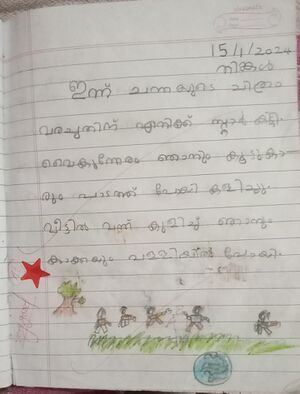 15/1/2024
തിങ്കൾ
ഇന്ന് ചന്തയുടെ ചിത്രം
വരച്ചതിന് എനിക്ക് സ്റ്റാർ കിട്ടി.
വൈകുന്നേരം ഞാനും കൂട്ടുകാ
രും പാടത്ത് പോയി കളിച്ചു.
വീട്ടിൽ വന്ന് കുളിച്ച് ഞാനും
കാക്കയും പള്ളിയിൽ പോയി.